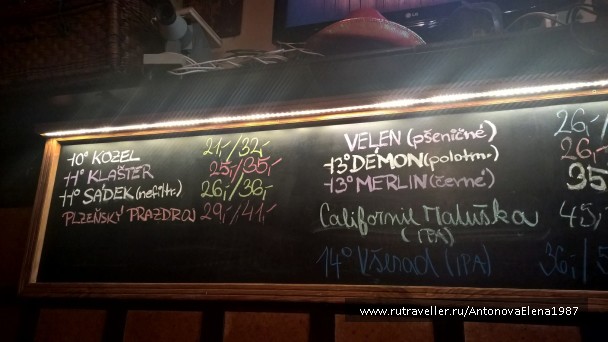 10° KOZEL 21,-/32,-
11° KLÁŠTER 25,-/35,-
11° SÁDEK (nefiltr.) 26,-/36,-
PLZEŇSKÝ PRAZDROJ 29,-/41,-
VELEN (pšeničné) 26,-/
13° DÉMON (polotm.) 26,-
13° MERLIN (černé) 35
Californie Matuška 45,-
(IPA)
14° Všerad (IPA) 36,-/5
www.rutraveller.ru/AntonovaElena1987